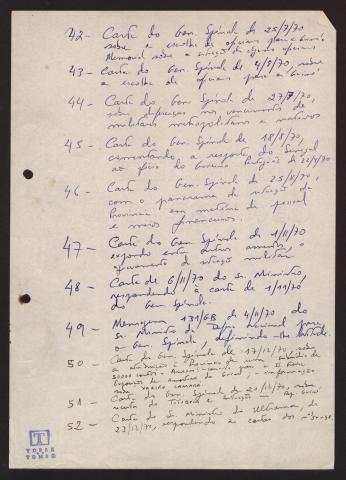 42 - Carta do Gen. Spínola de 25/7/70
sobre a escolha de oficiais para a Guiné.
Memorial sobre a situação de alguns oficiais
43 - Carta do Gen. Spínola de 4/8/70, sobre
a escolha de oficiais para a Guiné
44 - Carta do Gen. Spínola de 27/7/70,
sobre diferenças nos vencimentos de
militares metropolitanos e nativos
45 - Carta do Gen. Spínola de 18/8/70,
comentando a resposta do Senegal
ao
46 - Carta do Gen. Spínola de 25/8/70,
com o panorama da situação da
Província em matéria de pessoal
e meios financeiros.
47 - Carta do Gen. Spínola de 1/11/70
expondo entre outros assuntos, o
agravamento da situação militar
48 - Carta de 6/11/70 do Sr. Ministro,
respondendo à carta de 1/11/70
do Gen. Spínola.
49 - Mensagem 131/GB de 4/11/70 do
Sr. Ministro da Defesa Nacional para
o Gen. Spínola,
50 - Carta do Gen. Spínola de 17/12/70 sobre
a
50000 contos
51 - Carta do Gen. Spínola de 20/12/70, sobre
52 - Carta do Sr. Ministro do Ultramar, de
23/12/70, respondendo a cartas dos
T
TORRE
TOMBO